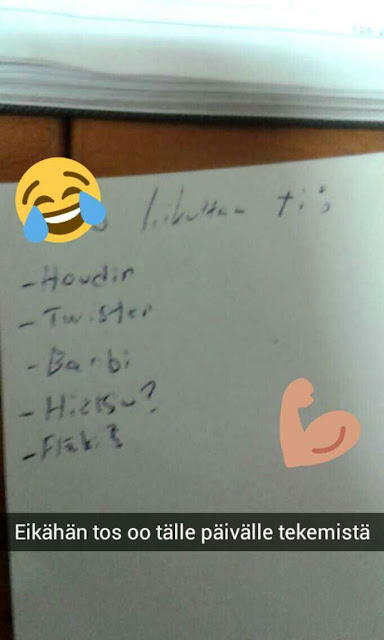 liikuttaa ti;
- Houdin
- Twister
- Barbi
- Hietsu?
- Fläki?
Eikähän tos oo tälle päivälle tekemistä